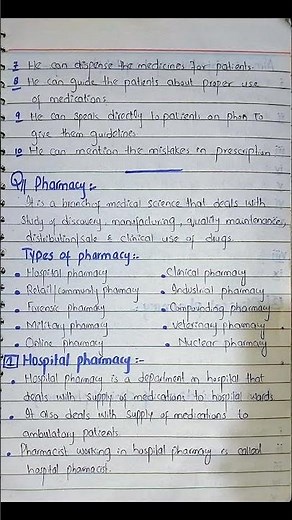 7 He can dispense the medicines for patients.
8 He can guide the patients about proper use
of medications.
9 He can speak directly to patients on phon to
give them guidelines
10 He can mention the mistakes in prescription
Q// Pharmacy:-
It is a branch of medical science that deals with
study of discovery, manufacturing, quality maintenance,
distribution/sale & clinical use of drugs.
Types of pharmacy:-
• Hospital pharmacy • Clinical pharmacy
• Retail/community pharmacy • Industrial pharmacy
• Forensic pharmacy • Compounding pharmacy
• Military pharmacy • Veterinary pharmacy
• Online pharmacy • Nuclear pharmacy
1 Hospital pharmacy:-
• Hospital pharmacy is a department in hospital that
deals with supply of medications to hospital wards.
• It also deals with supply of medications to
ambulatory patients.
• Pharmacist working in hospital pharmacy is called
hospital pharmacist.